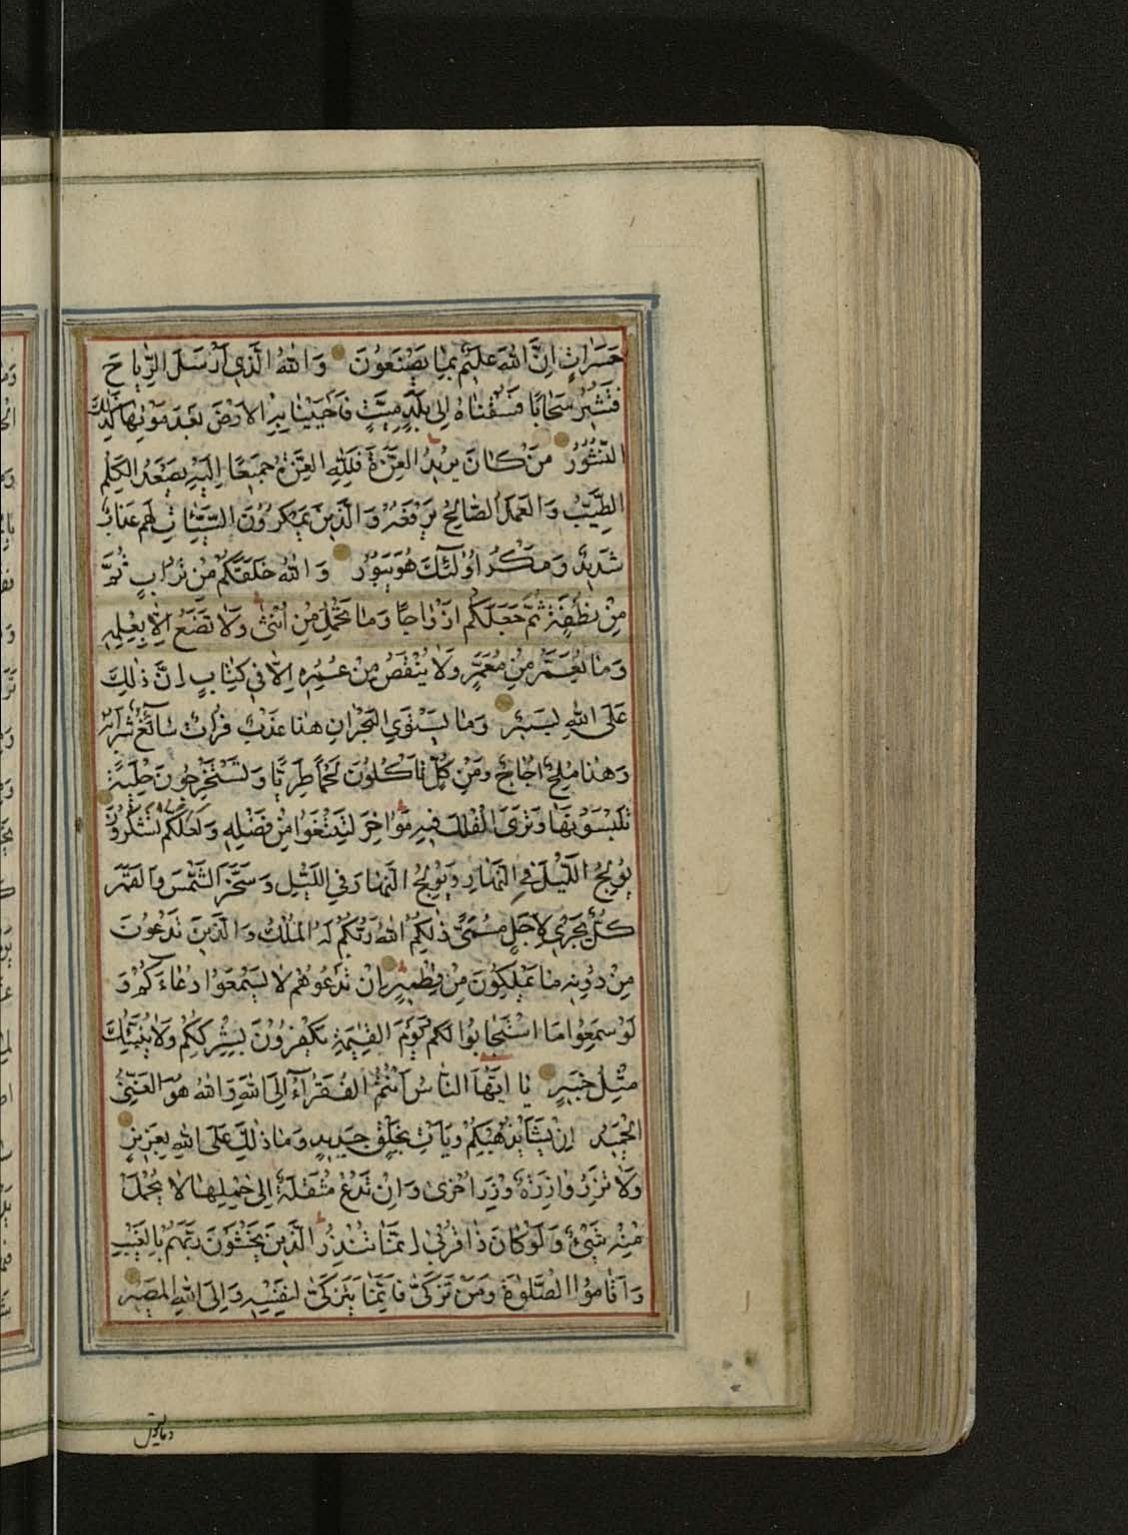 حَسَرَاتٍ اِنَّ اللّٰهَ عَلِيمٌ بِمَا يَصْنَعُونَ وَاللّٰهُ الَّذِي اَرْسَلَ الرِّيَاحَ
فَتُثِيرُ سَحَابًا فَسُقْنَاهُ اِلٰى بَلَدٍ مَيِّتٍ فَاَحْيَيْنَا بِهِ الْاَرْضَ بَعْدَ مَوْتِهَا كَذٰلِكَ
النُّشُورُ مَنْ كَانَ يُرِيدُ الْعِزَّةَ فَلِلّٰهِ الْعِزَّةُ جَمِيعًا اِلَيْهِ يَصْعَدُ الْكَلِمُ
الطَّيِّبُ وَالْعَمَلُ الصَّالِحُ يَرْفَعُهُ وَالَّذِينَ يَمْكُرُونَ السَّيِّئَاتِ لَهُمْ عَذَابٌ
شَدِيدٌ وَمَكْرُ اُولٰئِكَ هُوَ يَبُورُ وَاللّٰهُ خَلَقَكُمْ مِنْ تُرَابٍ ثُمَّ
مِنْ نُطْفَةٍ ثُمَّ جَعَلَكُمْ اَزْوَاجًا وَمَا تَحْمِلُ مِنْ اُنْثٰى وَلَا تَضَعُ اِلَّا بِعِلْمِهِ
وَمَا يُعَمَّرُ مِنْ مُعَمَّرٍ وَلَا يُنْقَصُ مِنْ عُمُرِهِ اِلَّا فِي كِتَابٍ اِنَّ ذٰلِكَ
عَلَى اللّٰهِ يَسِيرٌ وَمَا يَسْتَوِي الْبَحْرَانِ هٰذَا عَذْبٌ فُرَاتٌ سَائِغٌ شَرَابُهُ
وَهٰذَا مِلْحٌ اُجَاجٌ وَمِنْ كُلٍّ تَاْكُلُونَ لَحْمًا طَرِيًّا وَتَسْتَخْرِجُونَ حِلْيَةً
تَلْبَسُونَهَا وَتَرَى الْفُلْكَ فِيهِ مَوَاخِرَ لِتَبْتَغُوا مِنْ فَضْلِهِ وَلَعَلَّكُمْ تَشْكُرُونَ
يُولِجُ اللَّيْلَ فِي النَّهَارِ وَيُولِجُ النَّهَارَ فِي اللَّيْلِ وَسَخَّرَ الشَّمْسَ وَالْقَمَرَ
كُلٌّ يَجْرِي لِاَجَلٍ مُسَمًّى ذٰلِكُمُ اللّٰهُ رَبُّكُمْ لَهُ الْمُلْكُ وَالَّذِينَ تَدْعُونَ
مِنْ دُونِهِ مَا يَمْلِكُونَ مِنْ قِطْمِيرٍ اِنْ تَدْعُوهُمْ لَا يَسْمَعُوا دُعَاءَكُمْ وَ
لَوْ سَمِعُوا مَا اسْتَجَابُوا لَكُمْ وَيَوْمَ الْقِيٰمَةِ يَكْفُرُونَ بِشِرْكِكُمْ وَلَا يُنَبِّئُكَ
مِثْلُ خَبِيرٍ يَا اَيُّهَا النَّاسُ اَنْتُمُ الْفُقَرَاءُ اِلَى اللّٰهِ وَاللّٰهُ هُوَ الْغَنِيُّ
الْحَمِيدُ اِنْ يَشَاْ يُذْهِبْكُمْ وَيَاْتِ بِخَلْقٍ جَدِيدٍ وَمَا ذٰلِكَ عَلَى اللّٰهِ بِعَزِيزٍ
وَلَا تَزِرُ وَازِرَةٌ وِزْرَ اُخْرٰى وَاِنْ تَدْعُ مُثْقَلَةٌ اِلٰى حِمْلِهَا لَا يُحْمَلْ
مِنْهُ شَيْءٌ وَلَوْ كَانَ ذَا قُرْبٰى اِنَّمَا تُنْذِرُ الَّذِينَ يَخْشَوْنَ رَبَّهُمْ بِالْغَيْبِ
وَاَقَامُوا الصَّلٰوةَ وَمَنْ تَزَكّٰى فَاِنَّمَا يَتَزَكّٰى لِنَفْسِهِ وَاِلَى اللّٰهِ الْمَصِيرُ